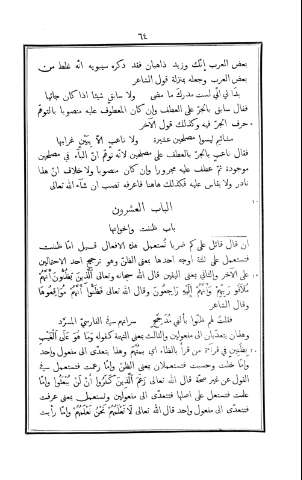 ٦٤
بعض العرب إنّك وزيد ذاهبان فقد ذكره سيبويه انّه غلط من
بعض العرب وجعله بمنزلة قول الشاعر
بدا لي أنّي لست مدرك ما مضى ولا سابق شيئا اذا كان جائيا
فقال سابق بالجرّ على العطف وإن كان المعطوف عليه منصوبا بالتوهّم
حرف الجرّ فيه وكذلك قول الآخر
مشائيم ليسوا مصلحين عشيرة ولا ناعب الّا ببين غرابها
فقال ناعب بالجرّ بالعطف على مصلحين لانّه توهّم انّ الباء في مصلحين
موجودة ثم عطف عليه مجرورا وإن كان منصوبا ولا خلاف انّ هذا
نادر ولا يقاس عليه فكذلك هاهنا فاعرفه تصب ان شاء الله تعالى
الباب العشرون
باب ظننت واخواتها
ان قال قائل على كم ضربا تستعمل هذه الافعال قيل امّا ظننت
فتستعمل على ثلثة اوجه احدها بمعنى الظنّ وهو ترجيح احد الاحتمالين
على الآخر والثاني بمعنى اليقين قال الله سبحانه وتعالى ٱلَّذِينَ يَظُنُّونَ أَنَّهُمْ
مُلَاقُو رَبِّهِمْ وَأَنَّهُمْ إِلَيْهِ رَاجِعُونَ وقال الله تعالى فَظَنُّوا أَنَّهُمْ مُوَاقِعُوهَا
وقال الشاعر
فقلت لهم ظنّوا بألفي مدجّج سراتهم في الفارسيّ المسرّد
وهذان يتعدّيان الى مفعولين والثالث بمعنى التهمة كقوله وَمَا هُوَ عَلَى ٱلْغَيْبِ
بِظَنِينٍ في قراءة من قرأ بالظاء اي بمتّهم وهذا يتعدّى الى مفعول واحد
وامّا خلت وحسبت فتستعملان بمعنى الظنّ وامّا زعمت فتستعمل في
القول عن غير صحّة قال الله تعالى زَعَمَ ٱلَّذِينَ كَفَرُوا أَنْ لَنْ يُبْعَثُوا وامّا
علمت فتستعمل على اصلها فتتعدّى الى مفعولين وتستعمل بمعنى عرفت
فتتعدّى الى مفعول واحد قال الله تعالى لَا تَعْلَمُهُمْ نَحْنُ نَعْلَمُهُمْ وامّا رأيت